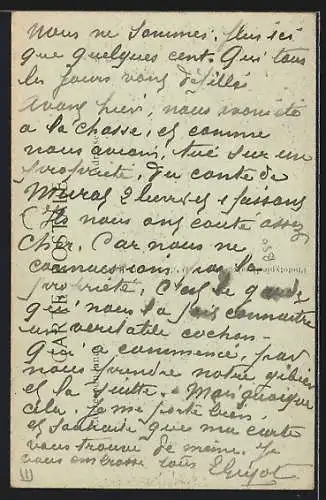 nous ne sommes plus ici
que quelques cent. Qui tous
les jours vont
Avant hier, nous
a la chasse, et comme
nous avions, tué sur un
propriété, du conte de
Murat 2 lievres 1 faisans
(Ils nous ont couté assez
cher. Car nous ne
connaissions pas la
propriété, C'est le garde
qui nous la fais connaitre
un veritable cochon.
Qui a commence, par
nous prendre notre gibier
et la suite. Mais quoique
cela. Je me porte bien
et souhaite que ma carte
vous trouve de même. Je
vous embrasse tous E Guyot